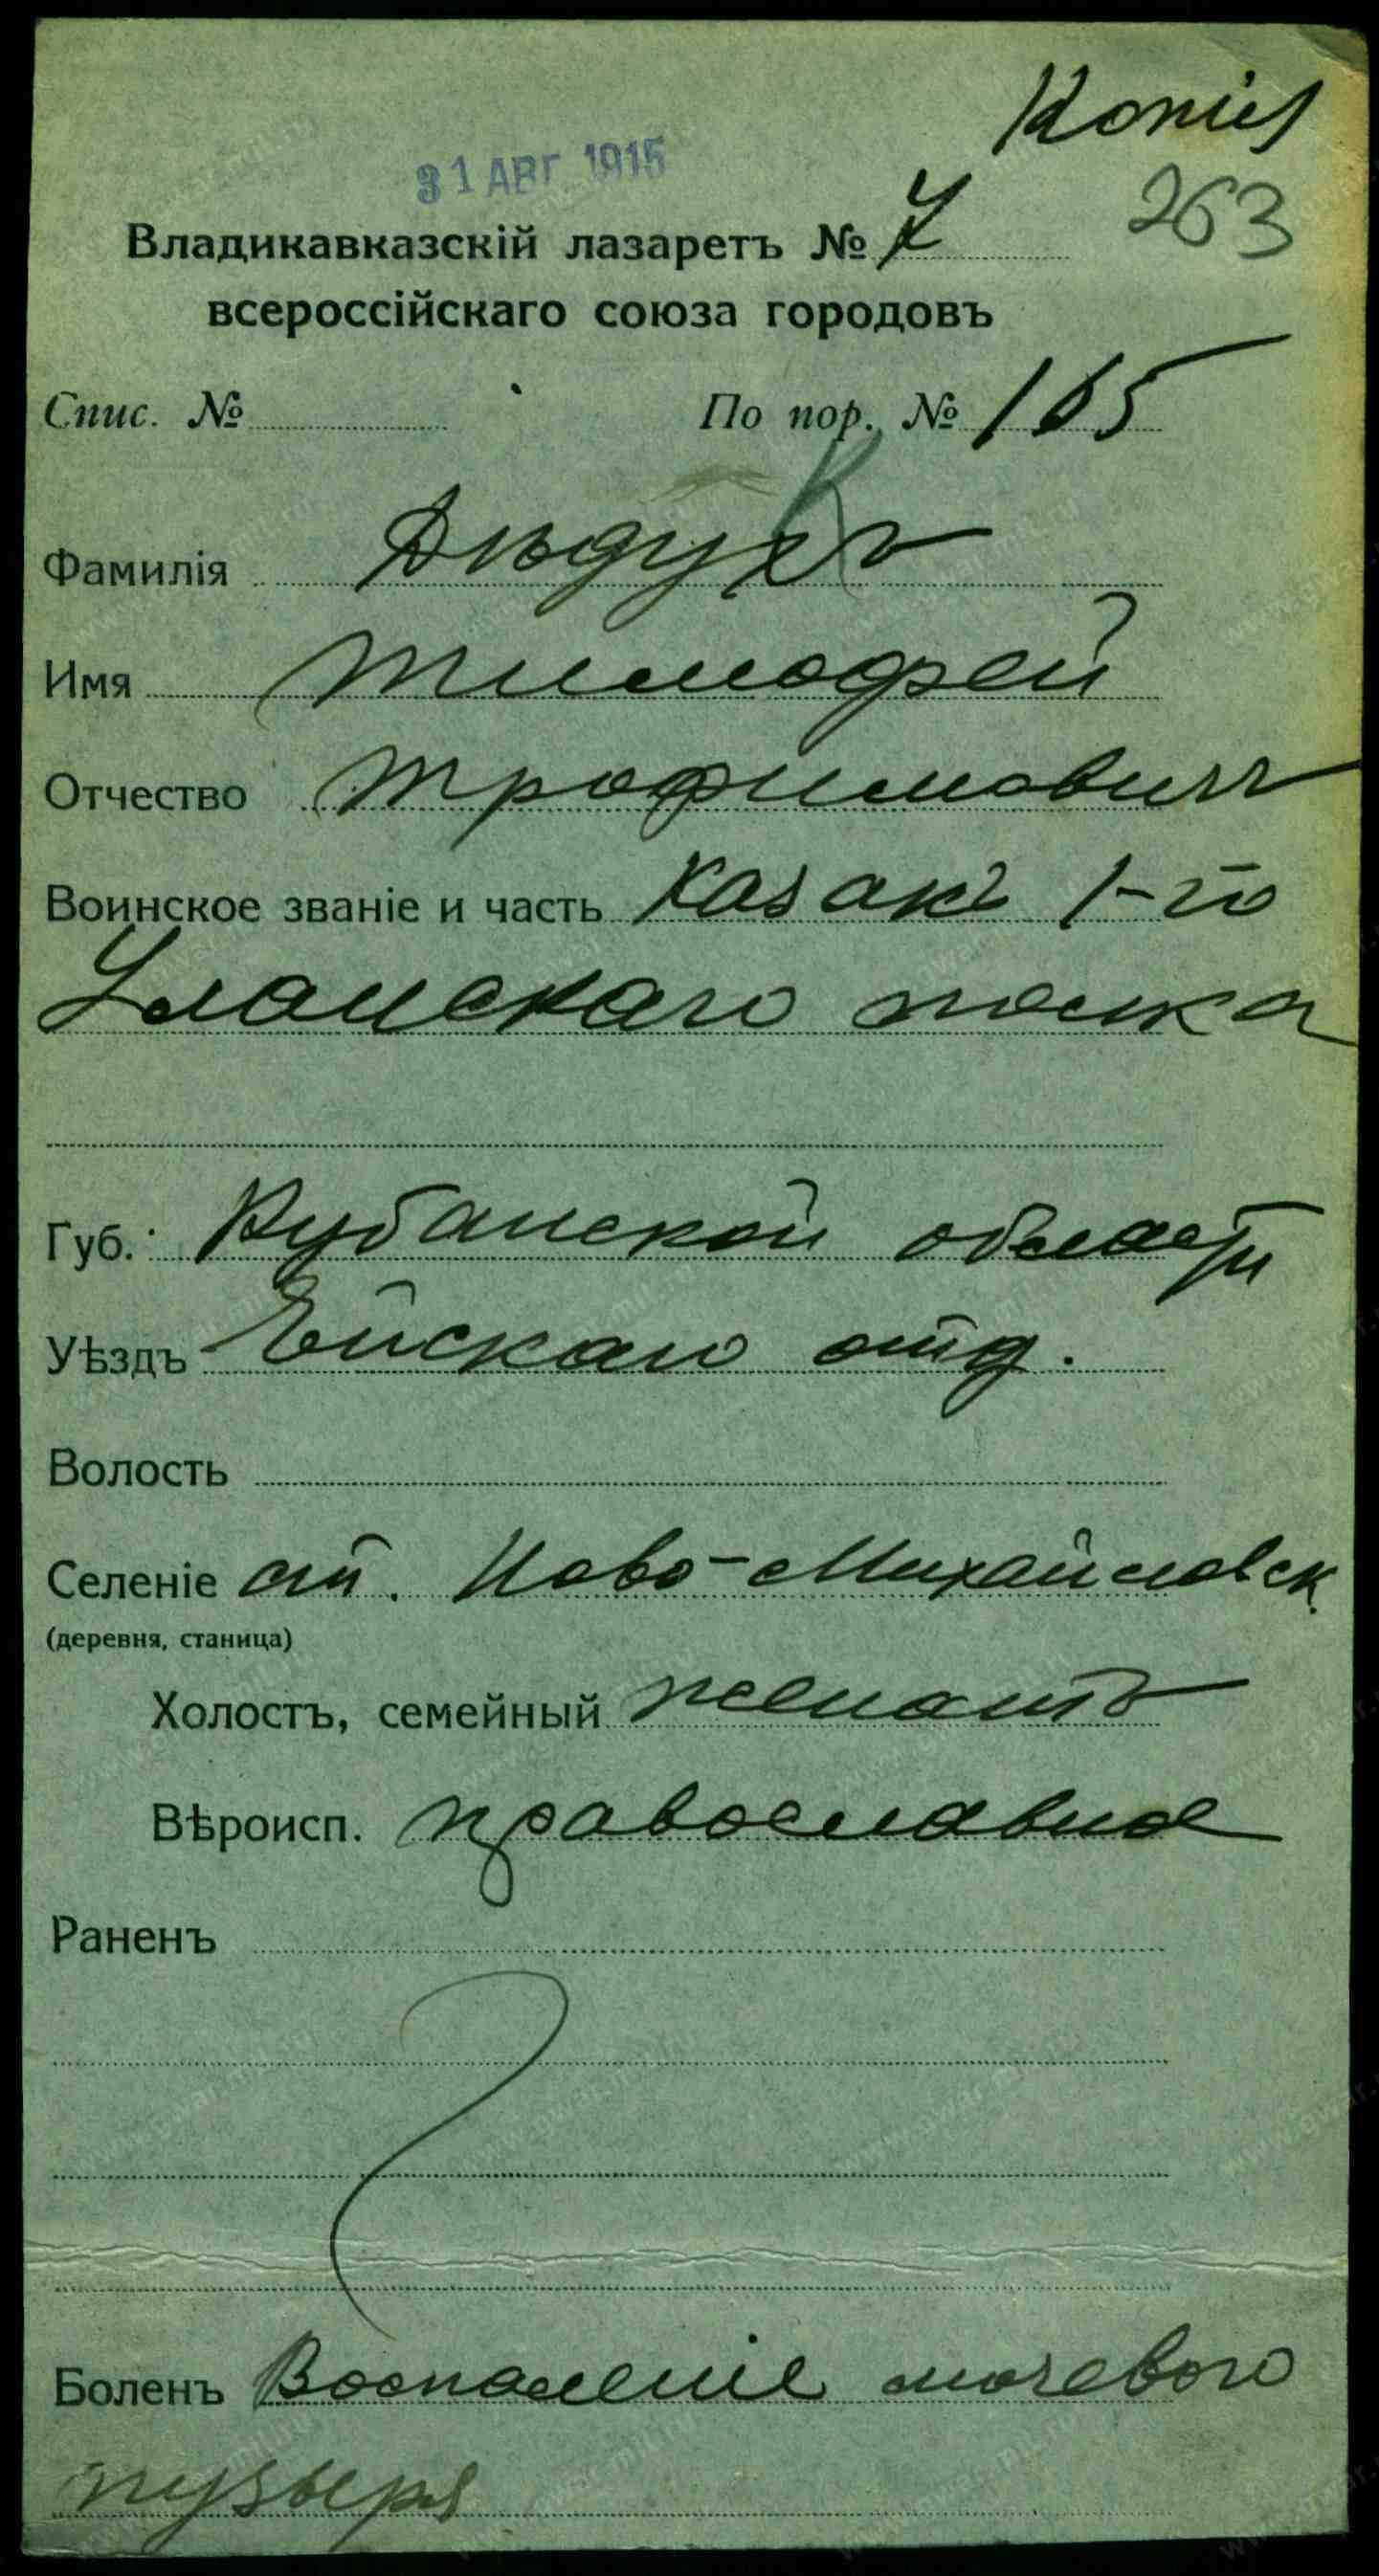 Копія
31 АВГ 1915
263
Владикавказскій лазаретъ № 7
всероссійскаго союза городовъ
Спис. № По пор. № 165
Фамилія Дѣдухъ
Имя Тимофей
Отчество Трофимовичъ
Воинское званіе и часть казакъ 1-го
Уланскаго полка
Губ. Кубанской области
Уѣздъ Ейскаго отд.
Волость
Селеніе ст. Ново-Михайловск.
(деревня, станица)
Холостъ, семейный женатъ
Вѣроисп. православное
Раненъ
Боленъ Воспаленіе мочевого
пузыря